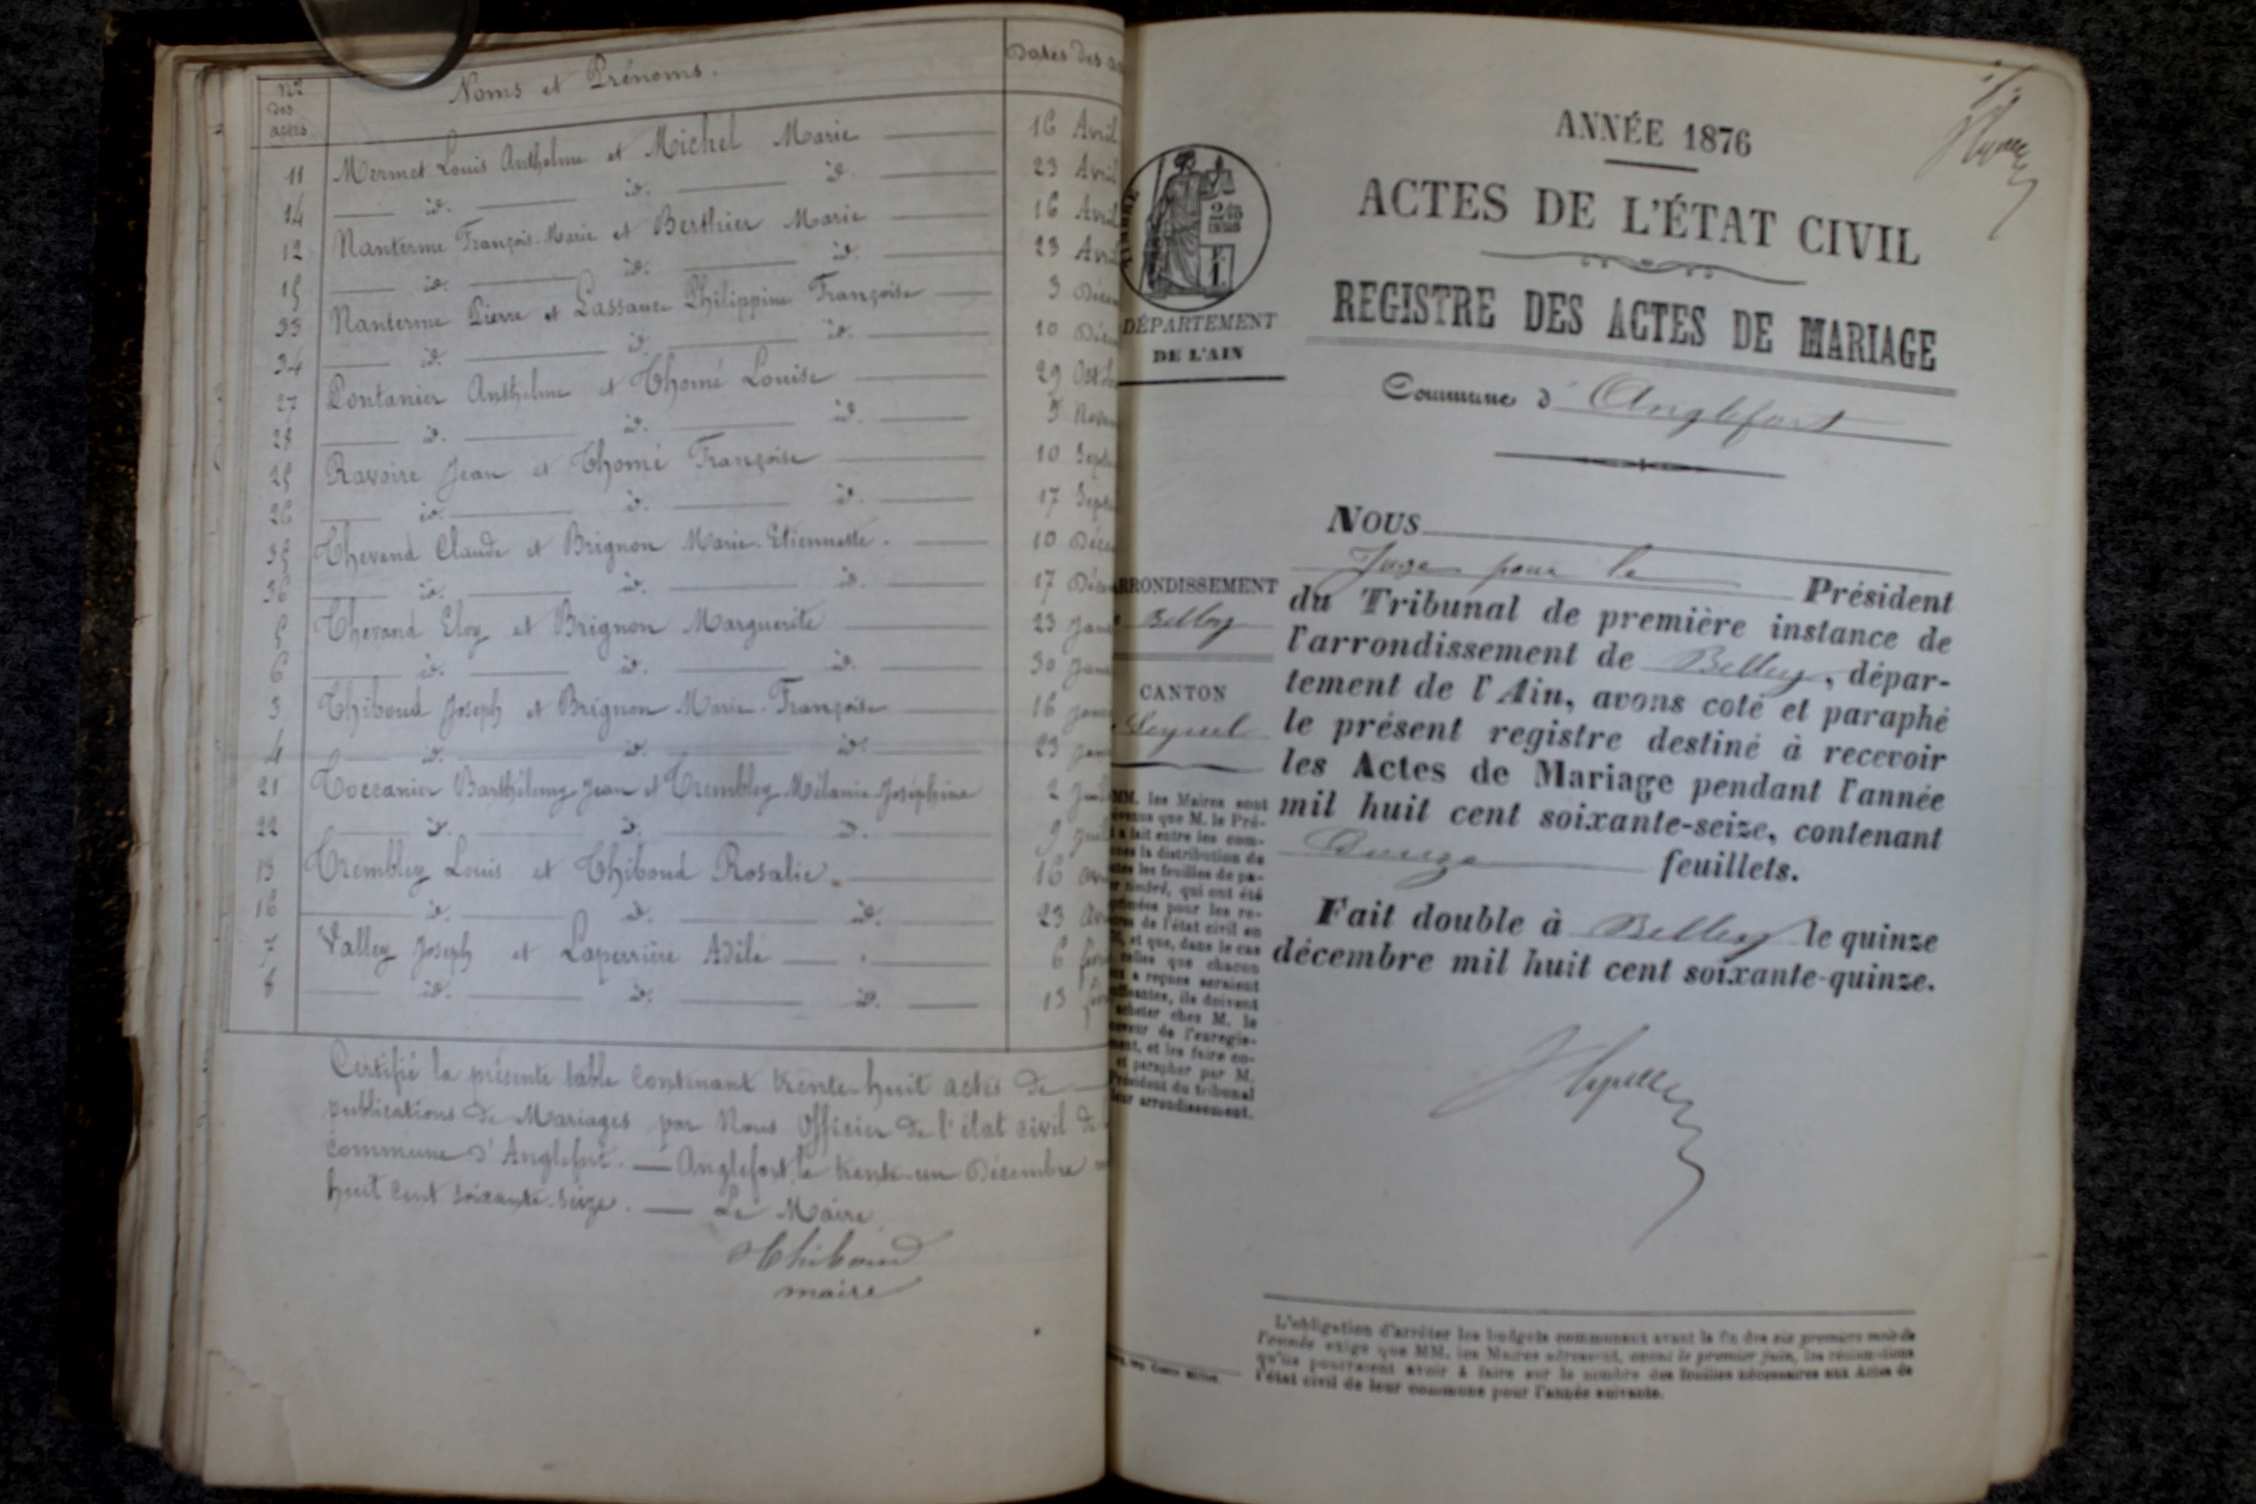 Nos des actes
Noms et Prénoms.
Dates des a
11 Mermet Louis Anthelme et Michel Marie 16 Avril
14 id. id. id. 23 Avril
12 Nanterme François-Marie et Berthier Marie 16 Avril
15 id. id. id. 23 Avril
33 Nanterme Pierre et Lassauce Philippine Françoise 3 Déce
34 id. id. id. 10 Déce
27 Pontanier Anthelme et Thomé Louise 29 Octo
28 id. id. id. 5 Novem
25 Ravoire Jean et Thomé Françoise 10 Septe
26 id. id. id. 17 Septe
35 Thevend Claude et Brignon Marie-Etiennette. 10 Déce
36 id. id. id. 17 Déce
5 Thevand Eloy et Brignon Marguerite 23 Janv
6 id. id. id. 30 Janv
3 Thiboud Joseph et Brignon Marie-Françoise 16 Janv
4 id. id. id. 23 Janv
21 Toccanier Barthélemy Jean et Trembley Mélanie Joséphine 2 Juil
22 id. id. id. 9 Juil
13 Trembley Louis et Thiboud Rosalie. 16 Av
16 id. id. id. 23 Av
7 Valley Joseph et Laperrière Adèle 6 févr
8 id. id. id. 13 fév
Certifié la présente table contenant trente-huit actes de
publications de Mariages par Nous Officier de l'état civil de
commune d'Anglefort. — Anglefort, le trente-un Décembre
huit cent soixante-seize. — Le Maire
Thiboud
maire
ANNÉE 1876
ACTES DE L'ÉTAT CIVIL
REGISTRE DES ACTES DE MARIAGE
Commune d'Anglefort
TIMBRE
DÉPARTEMENT
DE L'AIN
RRONDISSEMENT
Belley
CANTON
Seyssel
MM. les Maires sont
venus que M. le Pré-
a fait entre les com-
nes la distribution de
tes les feuilles de pa-
r timbré, qui ont été
primées pour les re-
tres de l'état civil en
, et que, dans le cas
celles que chacun
a reçues seraient
ffisantes, ils doivent
acheter chez M. le
eveur de l'enregis-
ment, et les faire co-
et parapher par M.
Président du tribunal
leur arrondissement.
NOUS
Juge pour le Président
du Tribunal de première instance de
l'arrondissement de Belley, dépar-
tement de l'Ain, avons coté et paraphé
le présent registre destiné à recevoir
les Actes de Mariage pendant l'année
mil huit cent soixante-seize, contenant
feuillets.
Fait double à Belley le quinze
décembre mil huit cent soixante-quinze.
L'obligation d'arrêter les budgets communaux avant la fin des six premiers mois de
l'année exige que MM. les Maires adressent, avant le premier juin, les réclamations
qu'ils pourraient avoir à faire sur le nombre des feuilles nécessaires aux Actes de
l'état civil de leur commune pour l'année suivante.